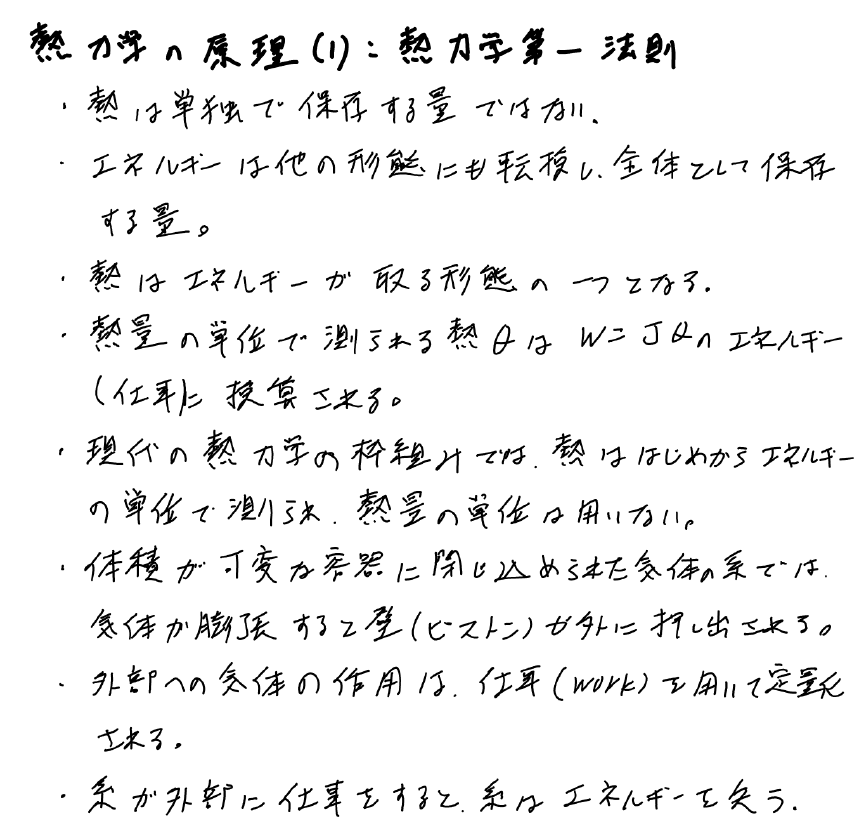 熱力学の原理(1): 熱力学第一法則
・熱は単独で保存する量ではない.
・エネルギーは他の形態にも転換し、全体として保存
する量。
・熱はエネルギーが取る形態の一つとなる.
・熱量の単位で測られる熱Qは W=JQのエネルギー
(仕事)に換算される。
・現代の熱力学の枠組みでは、熱ははじめからエネルギー
の単位で測られ、熱量の単位は用いない。
・体積が可変な容器に閉じ込められた気体の系では、
気体が膨張すると壁(ピストン)が外に押し出される。
・外部への気体の作用は、仕事(work)を用いて定量化
される。
・系が外部に仕事をすると、系はエネルギーを失う.